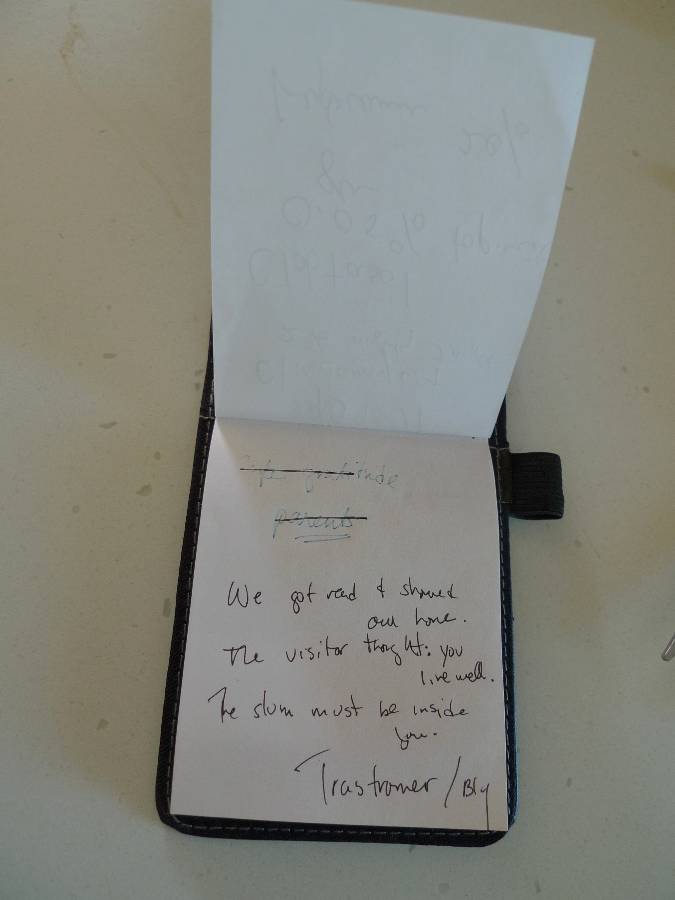 gratitude
parents
We got read & showed
our home.
The visitor thought: you
live well.
The slum must be inside
you.
Trastromer / Bly